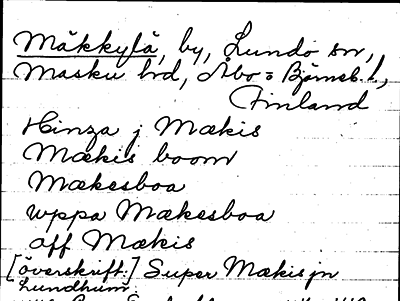 Mäkkylä, by, Lundo sn,
Masku hd, Åbo o Björneb. l.,
Finland
Hinza j Mækis
Mækis boom
Mækesboa
uppa Mækesboa
aff Mækis
[överskrift:] Super Mækis jn
Lundhum.